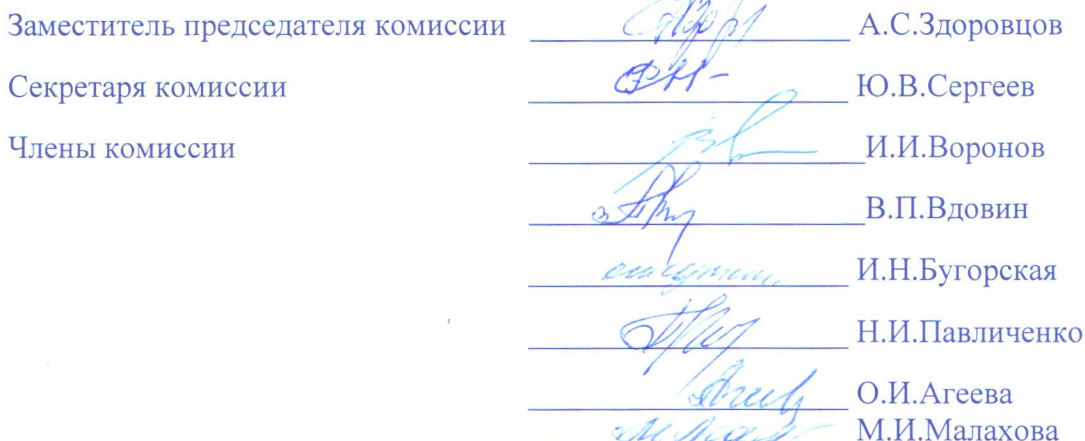 Заместитель председателя комиссии А.С.Здоровцов
Секретаря комиссии Ю.В.Сергеев
Члены комиссии И.И.Воронов
В.П.Вдовин
И.Н.Бугорская
Н.И.Павличенко
О.И.Агеева
М.И.Малахова